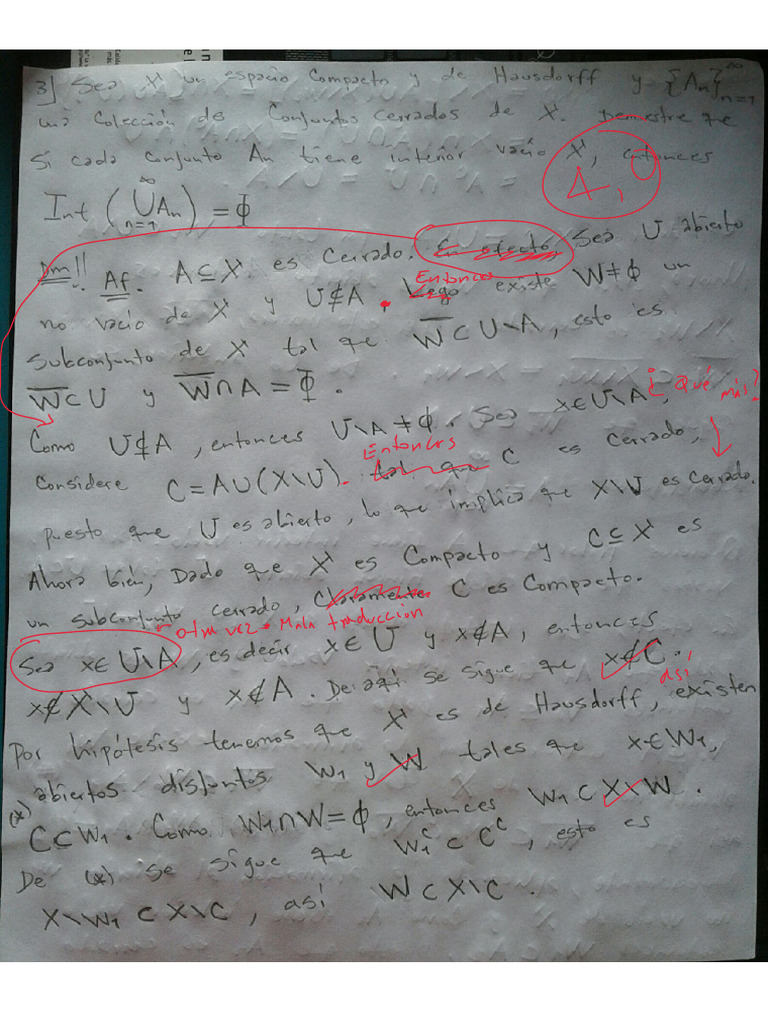 3] Sea X un espacio Compacto y de Hausdorff y {An}∞n=1
una Colección de Conjuntos cerrados de X. Demuestre que
Si cada Conjunto An tiene interior vacío X, entonces
4,0
Int (∞⋃n=1 An) = Φ
Dm!! Af. A⊆X es Cerrado. En efecto Sea U abierto
Entonces
no vacio de X y U⊄A. Luego existe W≠Φ un
Subconjunto de X tal que W̅⊂U∖A, esto es
W̅⊂U y W̅∩A=Φ.
Como U⊄A, entonces U∖A≠Φ. Sea x∈U∖A, ¿Qué más?
Entonces
Considere C=A∪(X∖U). tal que C es Cerrado,
puesto que U es abierto, lo que implica que X∖U es Cerrado.
Ahora bién, Dado que X es Compacto y C⊆X es
un subconjunto cerrado, Claramente C es Compacto.
otra vez Mala traducción
Sea x∈U∖A, es decir x∈U y x∉A, entonces
x∉X∖U y x∉A. De aqí se sigue que x∉C.
así
Por hipótesis tenemos que X es de Hausdorff, existen
abiertos disjuntos W1 y W tales que x∈W1,
(*) C⊂W1. Como W1∩W=Φ, entonces W1⊂X∖W.
De (*) se sigue que W1ᶜ⊂Cᶜ, esto es
X∖W1⊂X∖C, así W⊂X∖C.